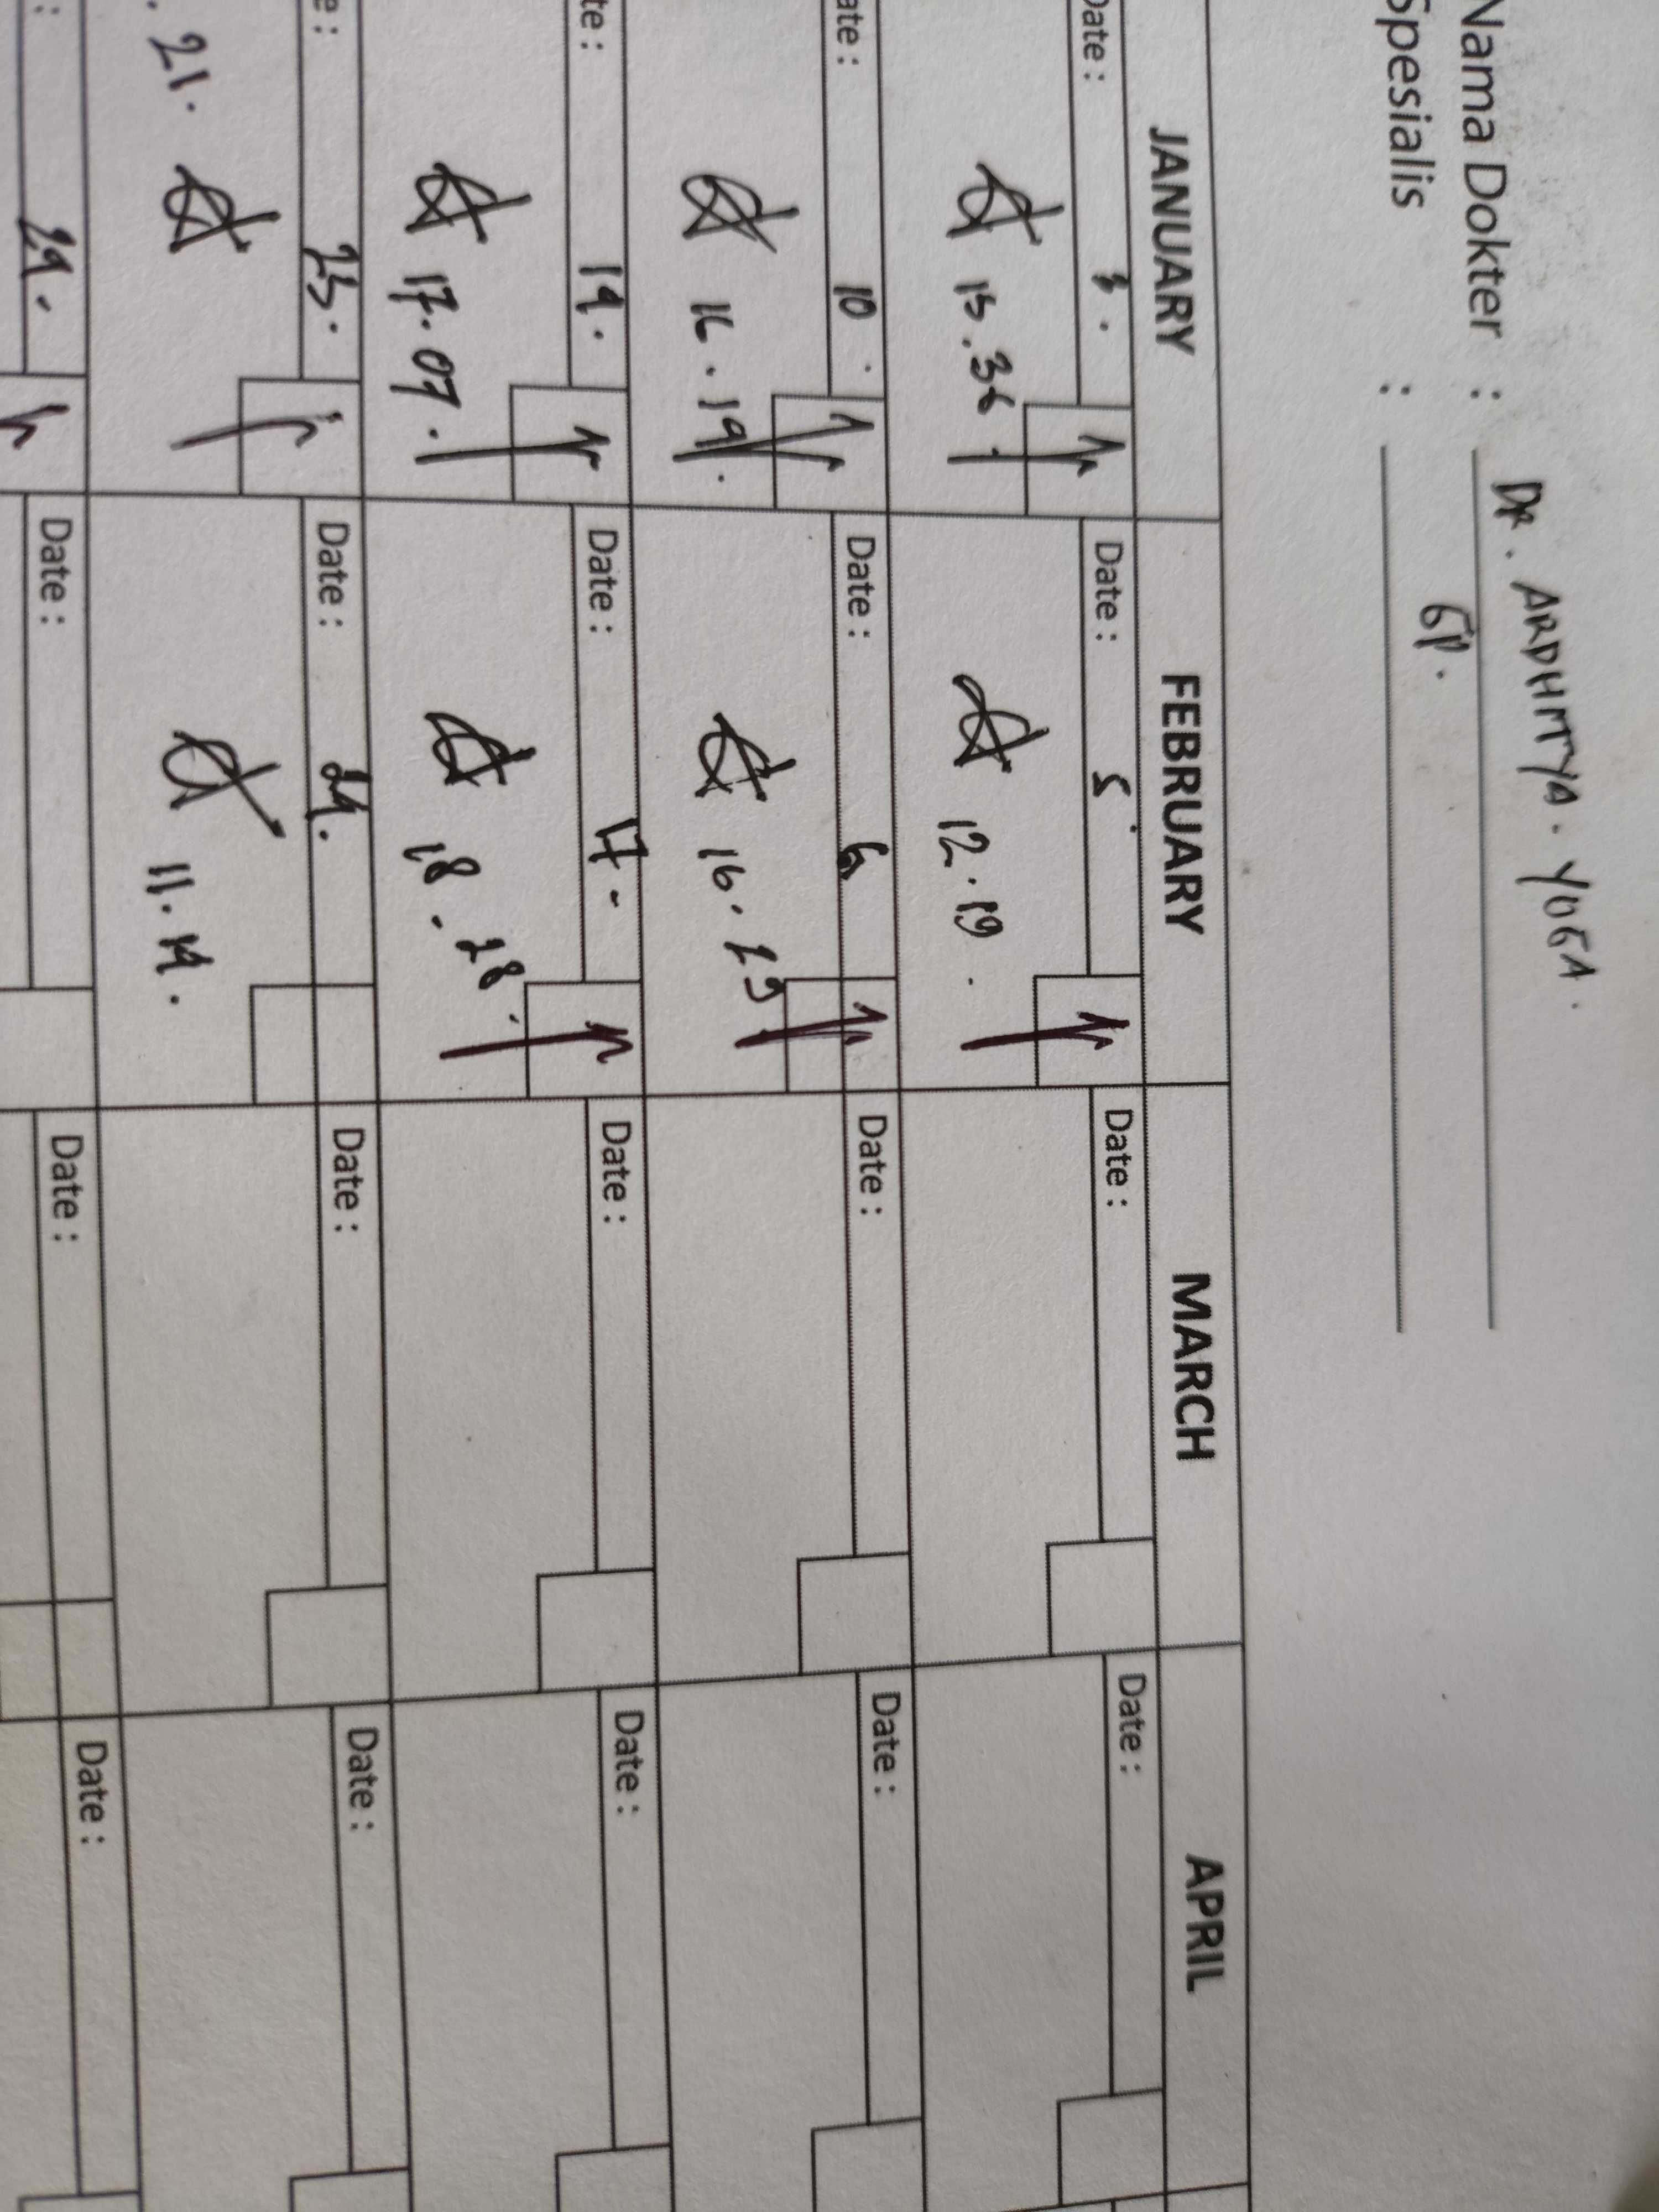 Nama Dokter : DR. ARDHITYA. YOGA.
Spesialis : GP.
JANUARY FEBRUARY MARCH APRIL
Date : 3. Date : 5 Date : Date :
15.36 12.19.
ate : 10. Date : 6 Date : Date :
16.19. 16.29
te : 19. Date : 17. Date : Date :
17.07. 18.28.
e : 23. Date : 24. Date : Date :
. 21. 11.14.
: 29. Date : Date : Date :